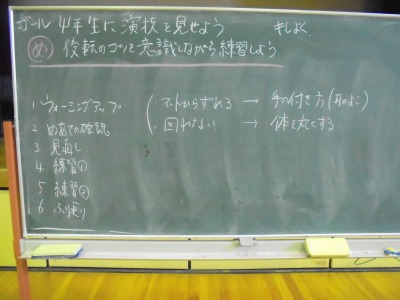 ゴール 4年生に演技を見せよう
め 後転のコツを意識しながら練習しよう
1 ウォーミングアップ
2 めあての確認
3 見直し
4 練習①
5 練習②
6 ふり返り
・マットからずれる → 手の付き方
・回れない → 体を丸くする